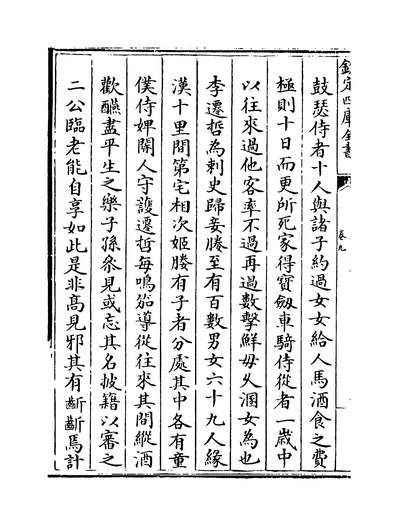 欽定四庫全書
卷九
鼓瑟侍者十人與諸子約過女女給人馬酒食之費
極則十日而更所死家得寶劔車騎侍從者一嵗中
以往來過他客率不過再過數擊鮮毋乆溷女為也
李遷哲為刺史歸妾媵至有百數男女六十九人緣
漢十里間第宅相次姬媵有子者分處其中各有童
僕侍婢閽人守䕶遷哲每鳴笳導從往來其間縱酒
歡醼盡平生之樂子孫參見或忘其名披籍以審之
二公臨老能自享如此是非髙見邪其有齗齗焉計